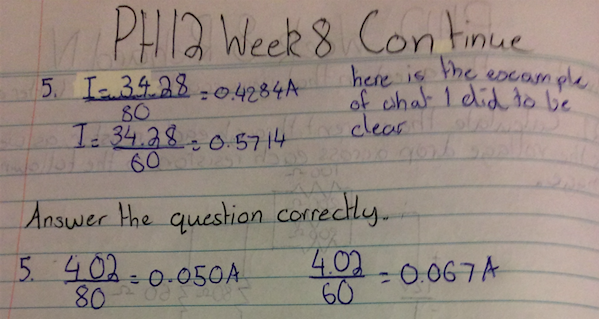 PH12 Week 8 Continue
5. I = 34.28 / 80 = 0.4284A
here is the example
of what I did to be
clear
I = 34.28 / 60 = 0.5714
Answer the question correctly.
5. 4.02 / 80 = 0.050A 4.02 / 60 = 0.067A